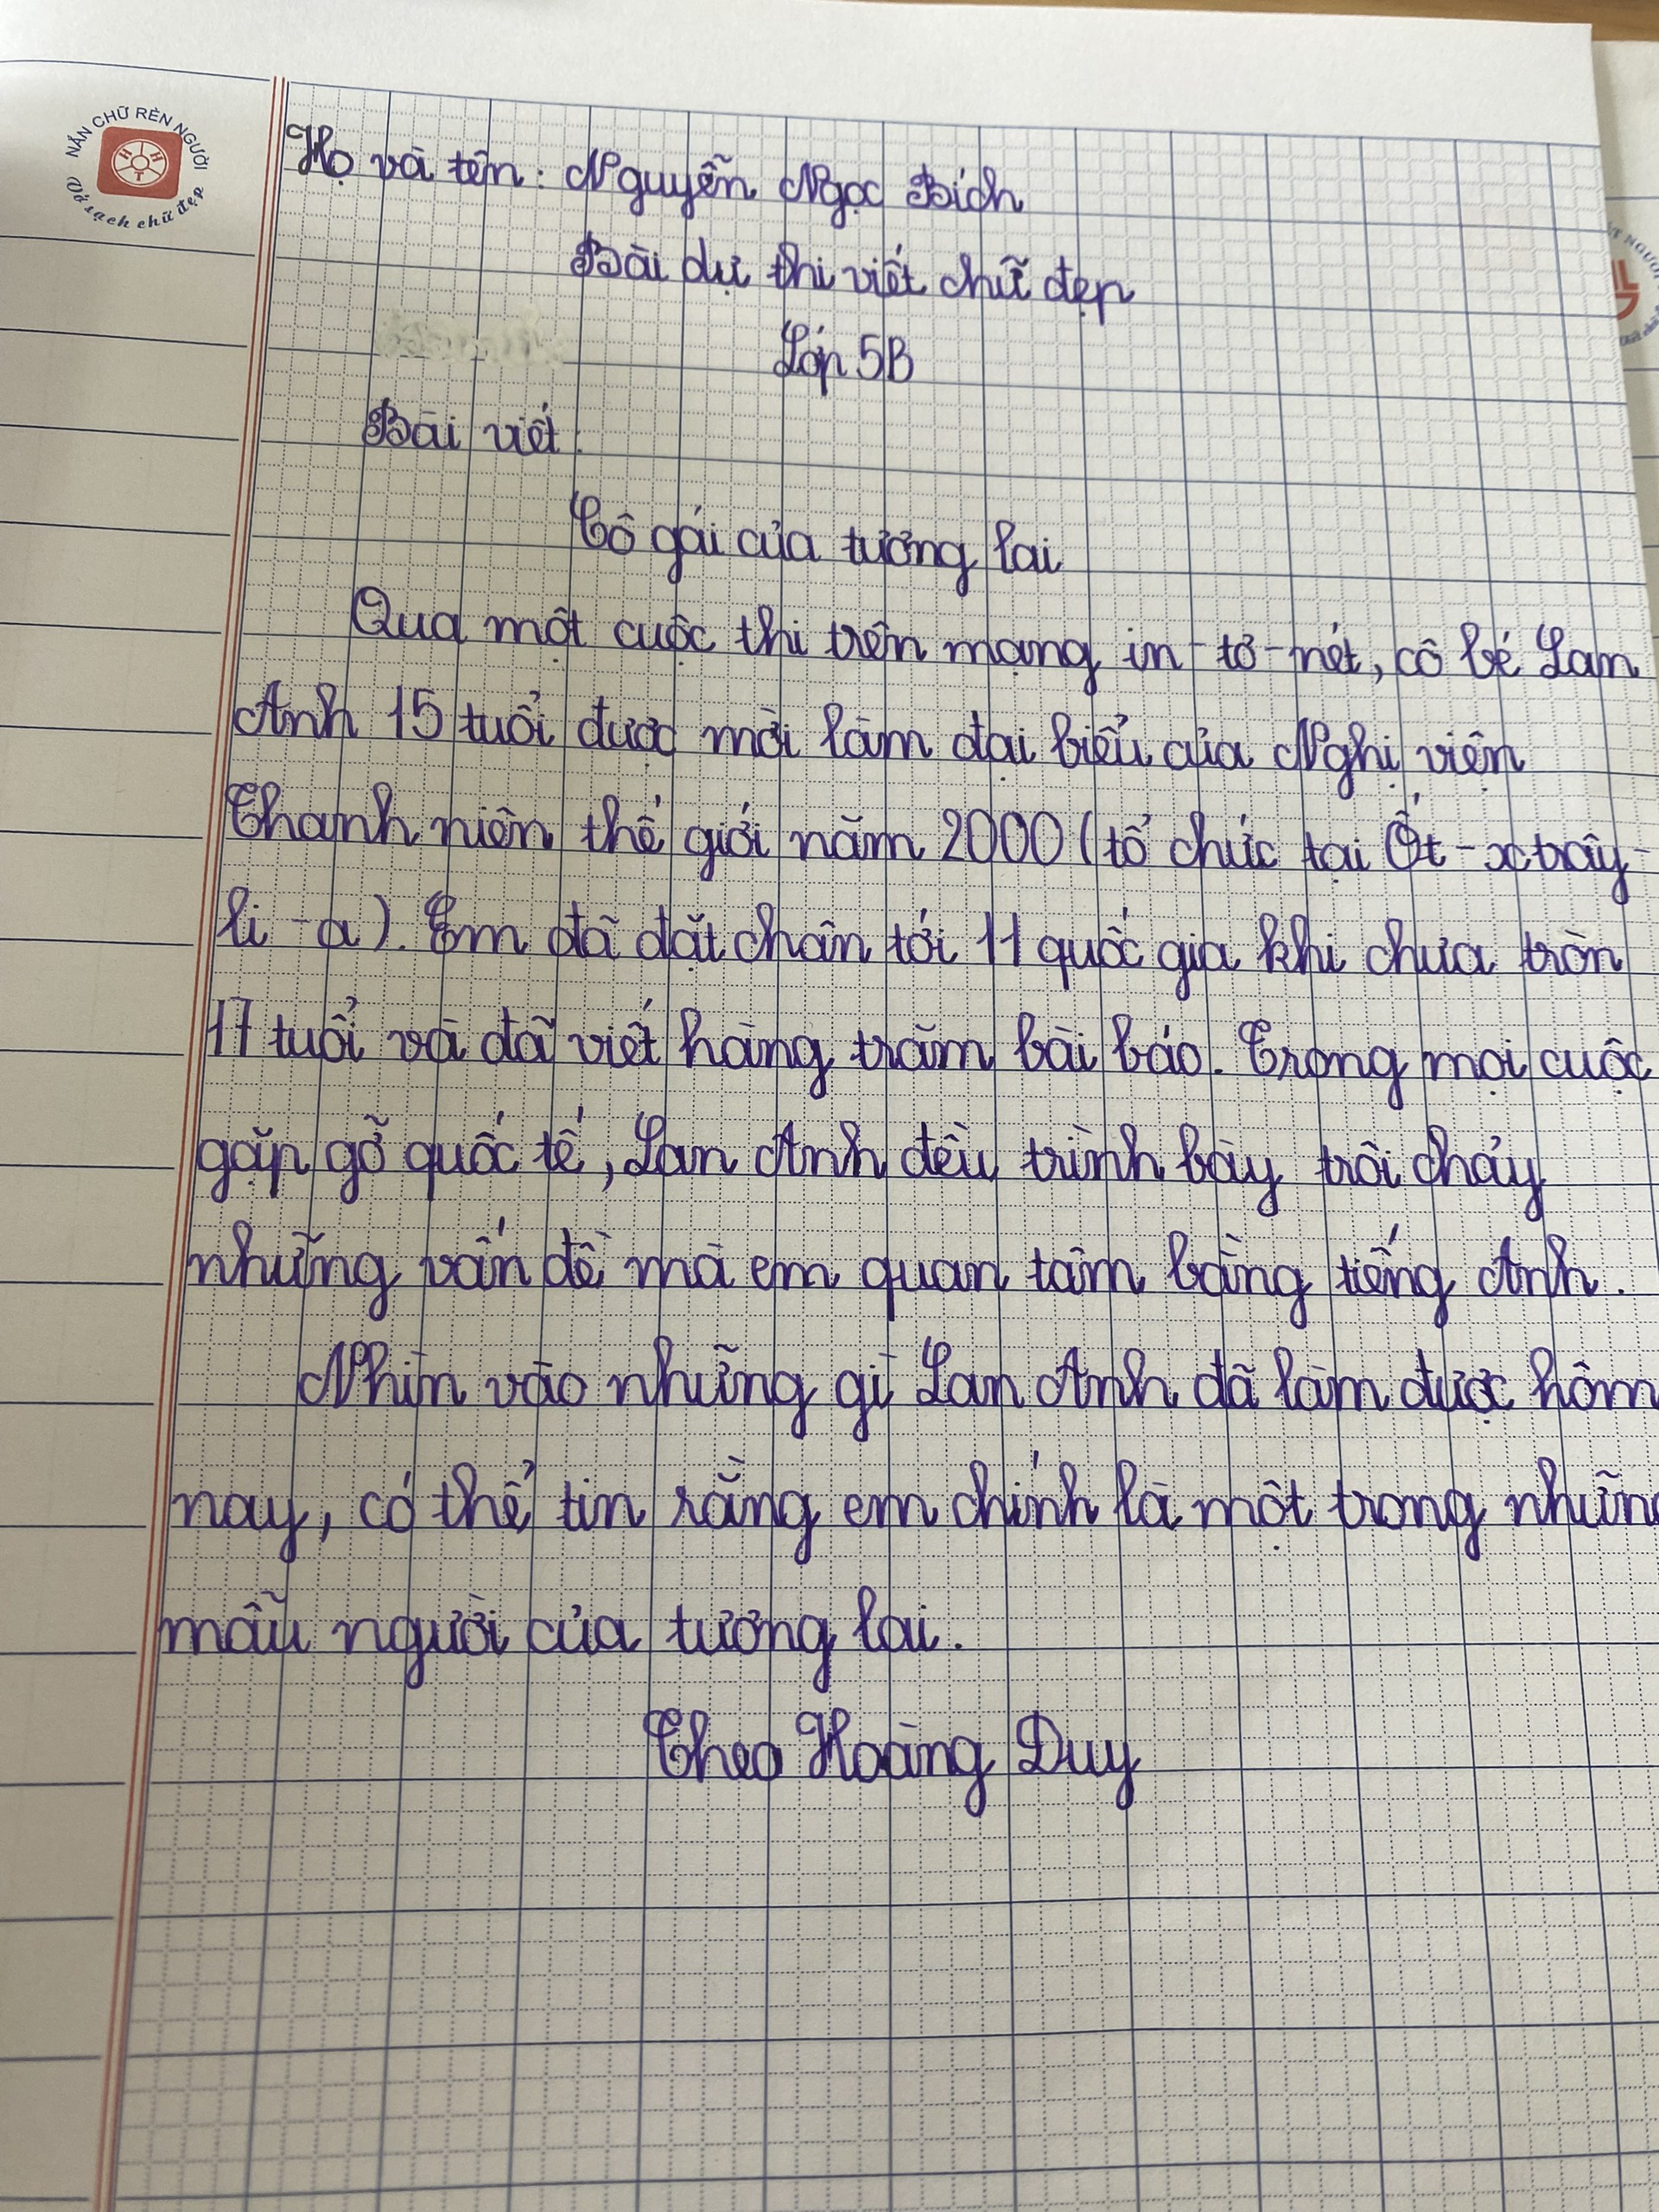 NẮN CHỮ RÈN NGƯỜI
H H T
Vở sạch chữ đẹp
Họ và tên: Nguyễn Ngọc Bích
Bài dự thi viết chữ đẹp
Lớp 5B
Bài viết:
Cô gái của tương lai
Qua một cuộc thi trên mạng in-tơ-nét, cô bé Lam
Anh 15 tuổi được mời làm đại biểu của Nghị viện
Thanh niên thế giới năm 2000 (tổ chức tại Ốt-xtrây-
li-a). Em đã đặt chân tới 11 quốc gia khi chưa tròn
17 tuổi và đã viết hàng trăm bài báo. Trong mọi cuộc
gặp gỡ quốc tế, Lan Anh đều trình bày trôi chảy
những vấn đề mà em quan tâm bằng tiếng Anh.
Nhìn vào những gì Lan Anh đã làm được hôm
nay, có thể tin rằng em chính là một trong những
mẫu người của tương lai.
Theo Hoàng Duy